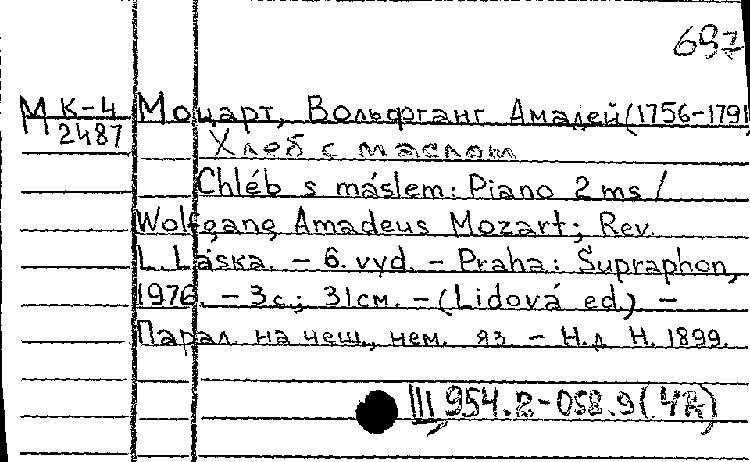 697
М К-4
2487
Моцарт, Вольфганг Амадей (1756-1791
Хлеб с маслом
Chléb s máslem: Piano 2 ms /
Wolfgang Amadeus Mozart; Rev.
L. Láska. – 6. vyd. – Praha: Supraphon,
1976. – 3 с.; 31 см. – (Lidová ed.) –
Парал. на чеш., нем. яз. – Н.д. H. 1899.
III 954.2-058.9(4R)